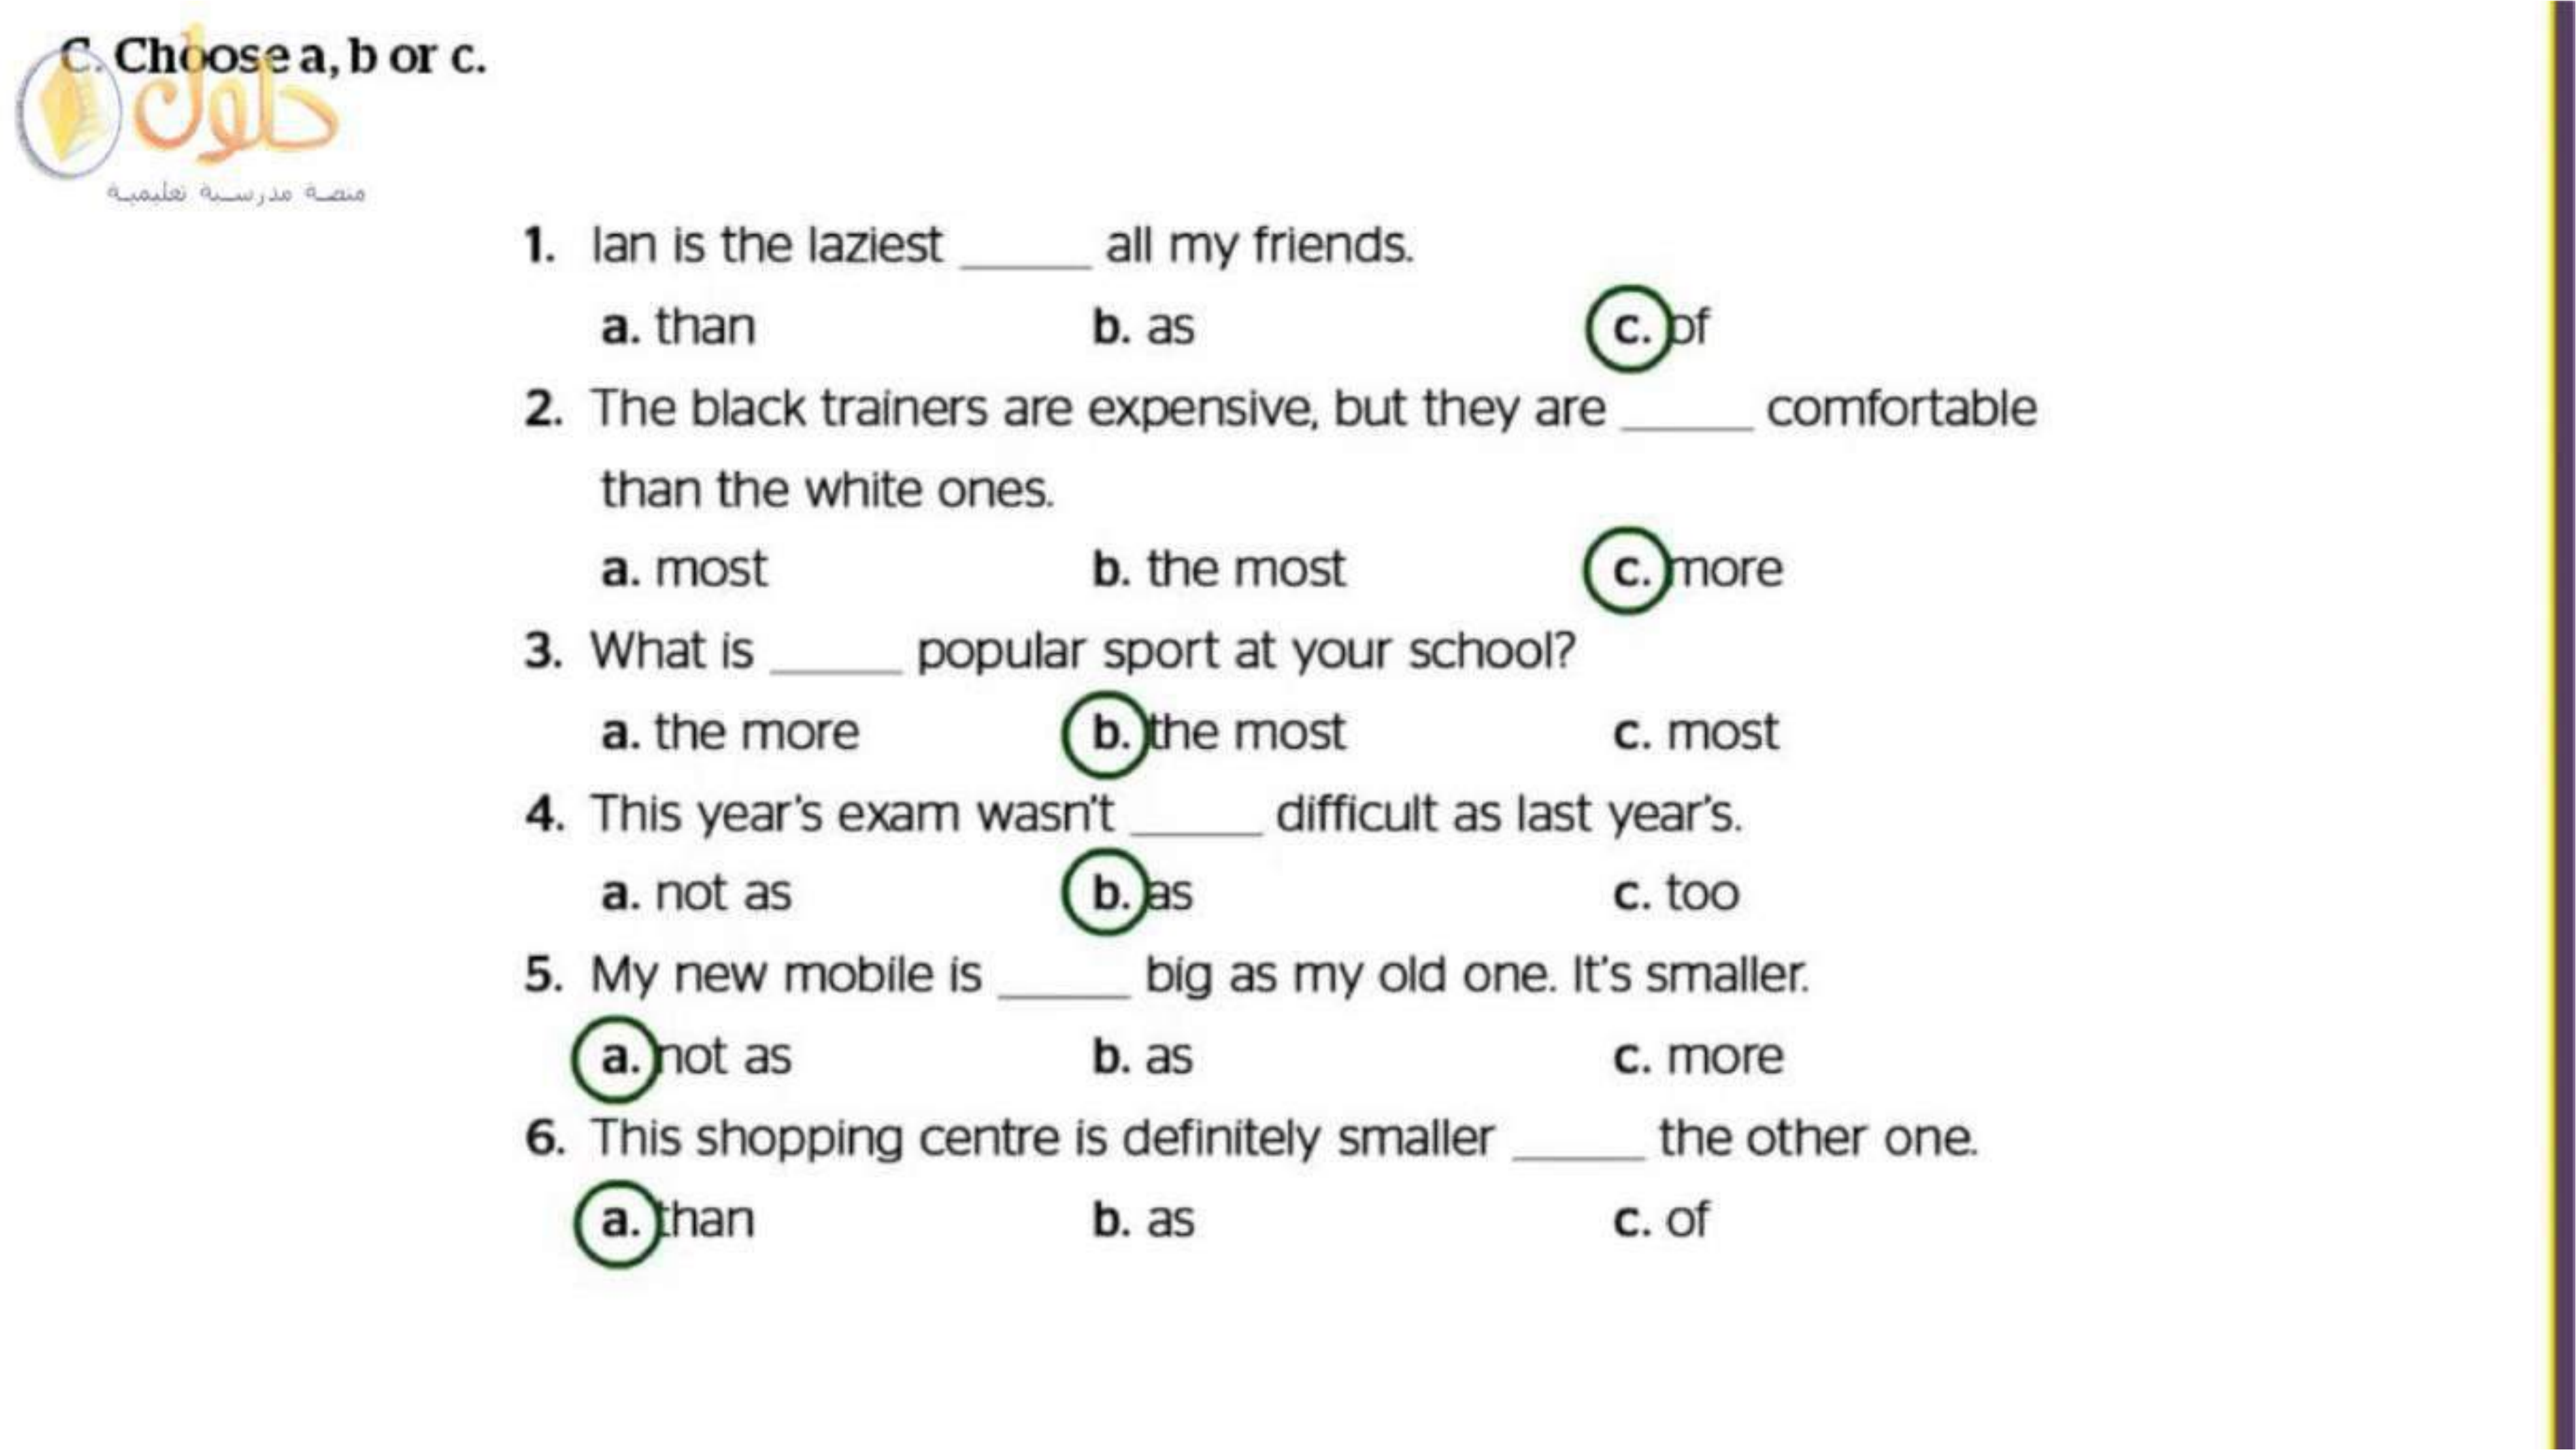 C. Choose a, b or c.
حلول
منصة مدرسية تعليمية
1. Ian is the laziest _____ all my friends.
a. than b. as c. of
2. The black trainers are expensive, but they are _____ comfortable
than the white ones.
a. most b. the most c. more
3. What is _____ popular sport at your school?
a. the more b. the most c. most
4. This year's exam wasn't _____ difficult as last year's.
a. not as b. as c. too
5. My new mobile is _____ big as my old one. It's smaller.
a. not as b. as c. more
6. This shopping centre is definitely smaller _____ the other one.
a. than b. as c. of